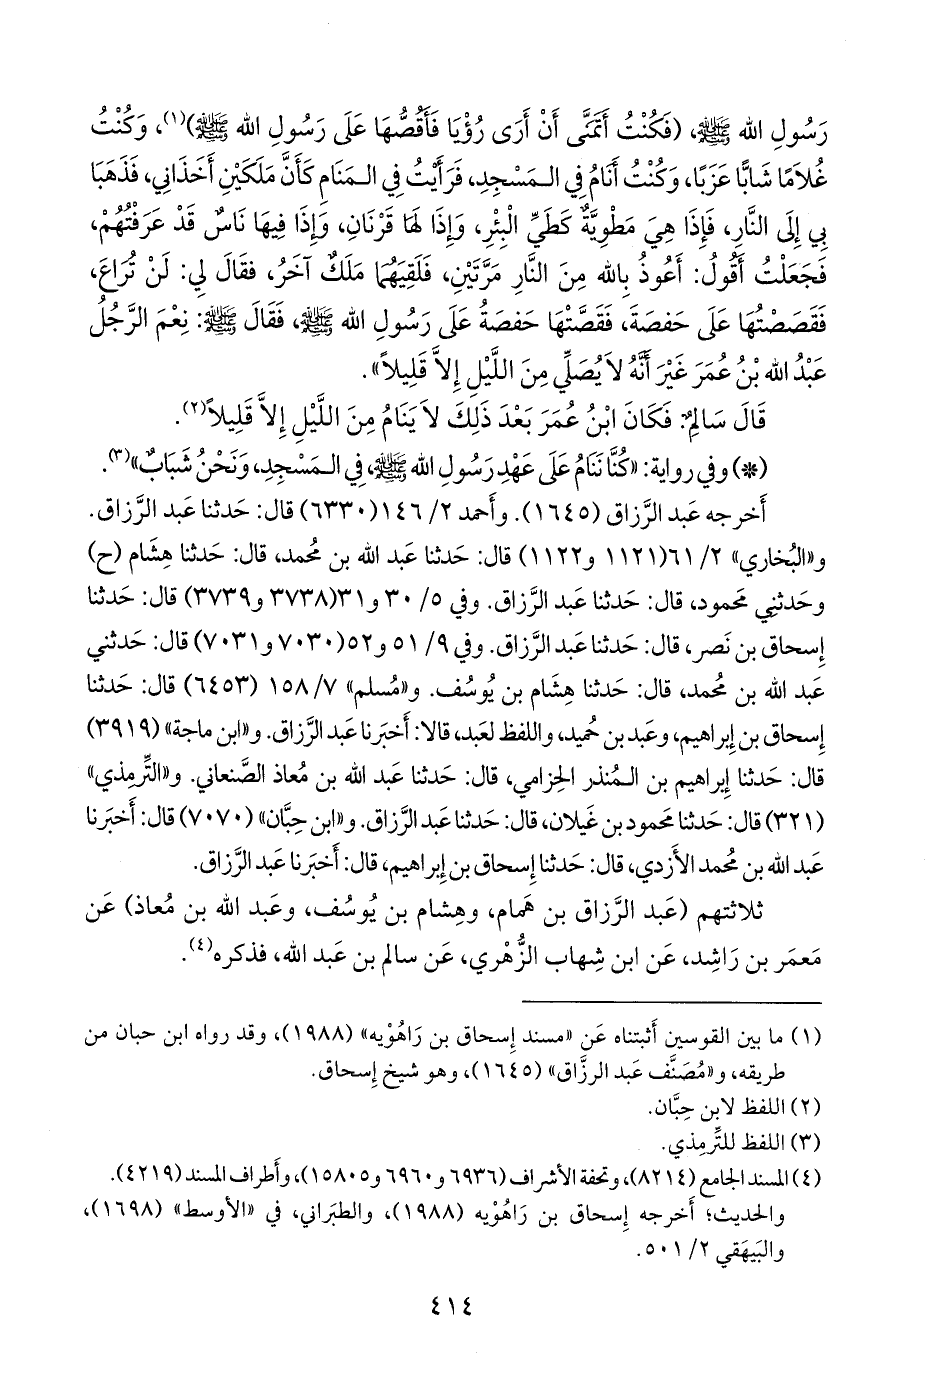 رَسُولِ الله ﷺ، (فَكُنْتُ أَتَمَنَّى أَنْ أَرَى رُؤْيَا فَأَقُصُّهَا عَلَى رَسُولِ الله ﷺ)(١)، وَكُنْتُ
غُلَامًا شَابًّا عَزَبًا، وَكُنْتُ أَنَامُ فِي الـمَسْجِدِ، فَرَأَيْتُ فِي الـمَنَامِ كَأَنَّ مَلَكَيْنِ أَخَذَانِي، فَذَهَبَا
بِي إِلَى النَّارِ، فَإِذَا هِيَ مَطْوِيَّةٌ كَطَيِّ الْبِئْرِ، وَإِذَا لَهَا قَرْنَانِ، وَإِذَا فِيهَا نَاسٌ قَدْ عَرَفْتُهُمْ،
فَجَعَلْتُ أَقُولُ: أَعُوذُ بِالله مِنَ النَّارِ مَرَّتَيْنِ، فَلَقِيَهُمَا مَلَكٌ آخَرُ، فقَالَ لِي: لَنْ تُرَاعَ،
فَقَصَصْتُهَا عَلَى حَفصَةَ، فَقَصَّتْهَا حَفصَةُ عَلَى رَسُولِ الله ﷺ، فَقَالَ ﷺ: نِعْمَ الرَّجُلُ
عَبْدُ الله بْنُ عُمَرَ غَيْرَ أَنَّهُ لاَ يُصَلِّي مِنَ اللَّيْلِ إِلاَّ قَلِيلاً».
قَالَ سَالِمٌ: فَكَانَ ابْنُ عُمَرَ بَعْدَ ذَلِكَ لاَ يَنَامُ مِنَ اللَّيْلِ إِلاَّ قَلِيلاً(٢).
(*) وفي رواية: «كُنَّا نَنَامُ عَلَى عَهْدِ رَسُولِ الله ﷺ، فِي الـمَسْجِدِ، وَنَحْنُ شَبَابٌ»(٣).
أَخرجه عَبد الرَّزاق (١٦٤٥). وأَحمد ٢/ ١٤٦(٦٣٣٠) قال: حَدثنا عَبد الرَّزاق.
و«البُخاري» ٢/ ٦١(١١٢١ و١١٢٢) قال: حَدثنا عَبد الله بن مُحمد، قال: حَدثنا هِشَام (ح)
وحَدثنِي مَحمود، قال: حَدثنا عَبد الرَّزاق. وفي ٥/ ٣٠ و٣١(٣٧٣٨ و٣٧٣٩) قال: حَدثنا
إِسحاق بن نَصر، قال: حَدثنا عَبد الرَّزاق. وفي ٩/ ٥١ و٥٢(٧٠٣٠ و٧٠٣١) قال: حَدثني
عَبد الله بن مُحمد، قال: حَدثنا هِشَام بن يُوسُف. و«مُسلم» ٧/ ١٥٨ (٦٤٥٣) قال: حَدثنا
إِسحاق بن إِبراهيم، وعَبد بن حُميد، واللفظ لعَبد، قالا: أَخبَرنا عَبد الرَّزاق. و«ابن ماجة» (٣٩١٩)
قال: حَدثنا إِبراهيم بن الـمُنذر الحِزامي، قال: حَدثنا عَبد الله بن مُعاذ الصَّنعاني. و«التِّرمِذي»
(٣٢١) قال: حَدثنا مَحمود بن غَيلان، قال: حَدثنا عَبد الرَّزاق. و«ابن حِبَّان» (٧٠٧٠) قال: أَخبَرنا
عَبد الله بن مُحمد الأَزدي، قال: حَدثنا إِسحاق بن إِبراهيم، قال: أَخبَرنا عَبد الرَّزاق.
ثلاثتهم (عَبد الرَّزاق بن هَمام، وهِشام بن يُوسُف، وعَبد الله بن مُعاذ) عَن
مَعمَر بن رَاشِد، عَن ابن شِهاب الزُّهْري، عَن سالم بن عَبد الله، فذكره(٤).
(١) ما بين القوسين أَثبتناه عَن «مسند إِسحاق بن رَاهُوْيه» (١٩٨٨)، وقد رواه ابن حبان من
طريقه، و«مُصَنَّف عَبد الرزَّاق» (١٦٤٥)، وهو شيخ إِسحاق.
(٢) اللفظ لابن حِبَّان.
(٣) اللفظ للتِّرمِذي.
(٤) المسند الجامع (٨٢١٤)، وتحفة الأَشراف (٦٩٣٦ و٦٩٦٠ و١٥٨٠٥)، وأَطراف المسند (٤٢١٩).
والحديث؛ أَخرجه إِسحاق بن رَاهُوْيه (١٩٨٨)، والطبَراني، في «الأَوسط» (١٦٩٨)،
والبَيهَقي ٢/ ٥٠١.
٤١٤